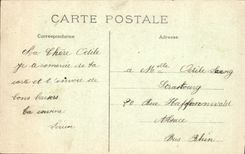 CARTE POSTALE
Correspondance
Adresse
Ma Chère Odile
Je te remercie de ta
carte et t'envoie de
bons baisers
Ta cousine
à Mlle Odile
Strasbourg
20 Rue
Alsace
Bas Rhin